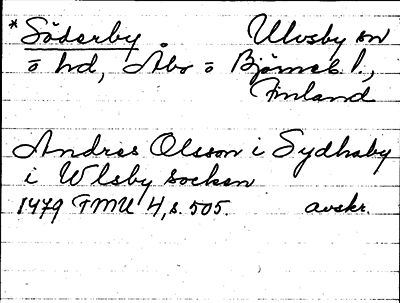 *Söderby. Ulvsby sn
o hd, Åbo o Björneb. l.,
Finland
Andres Olsson i Sydhaby
i Wlsby socken
1479 FMU 4, s. 505. avskr.